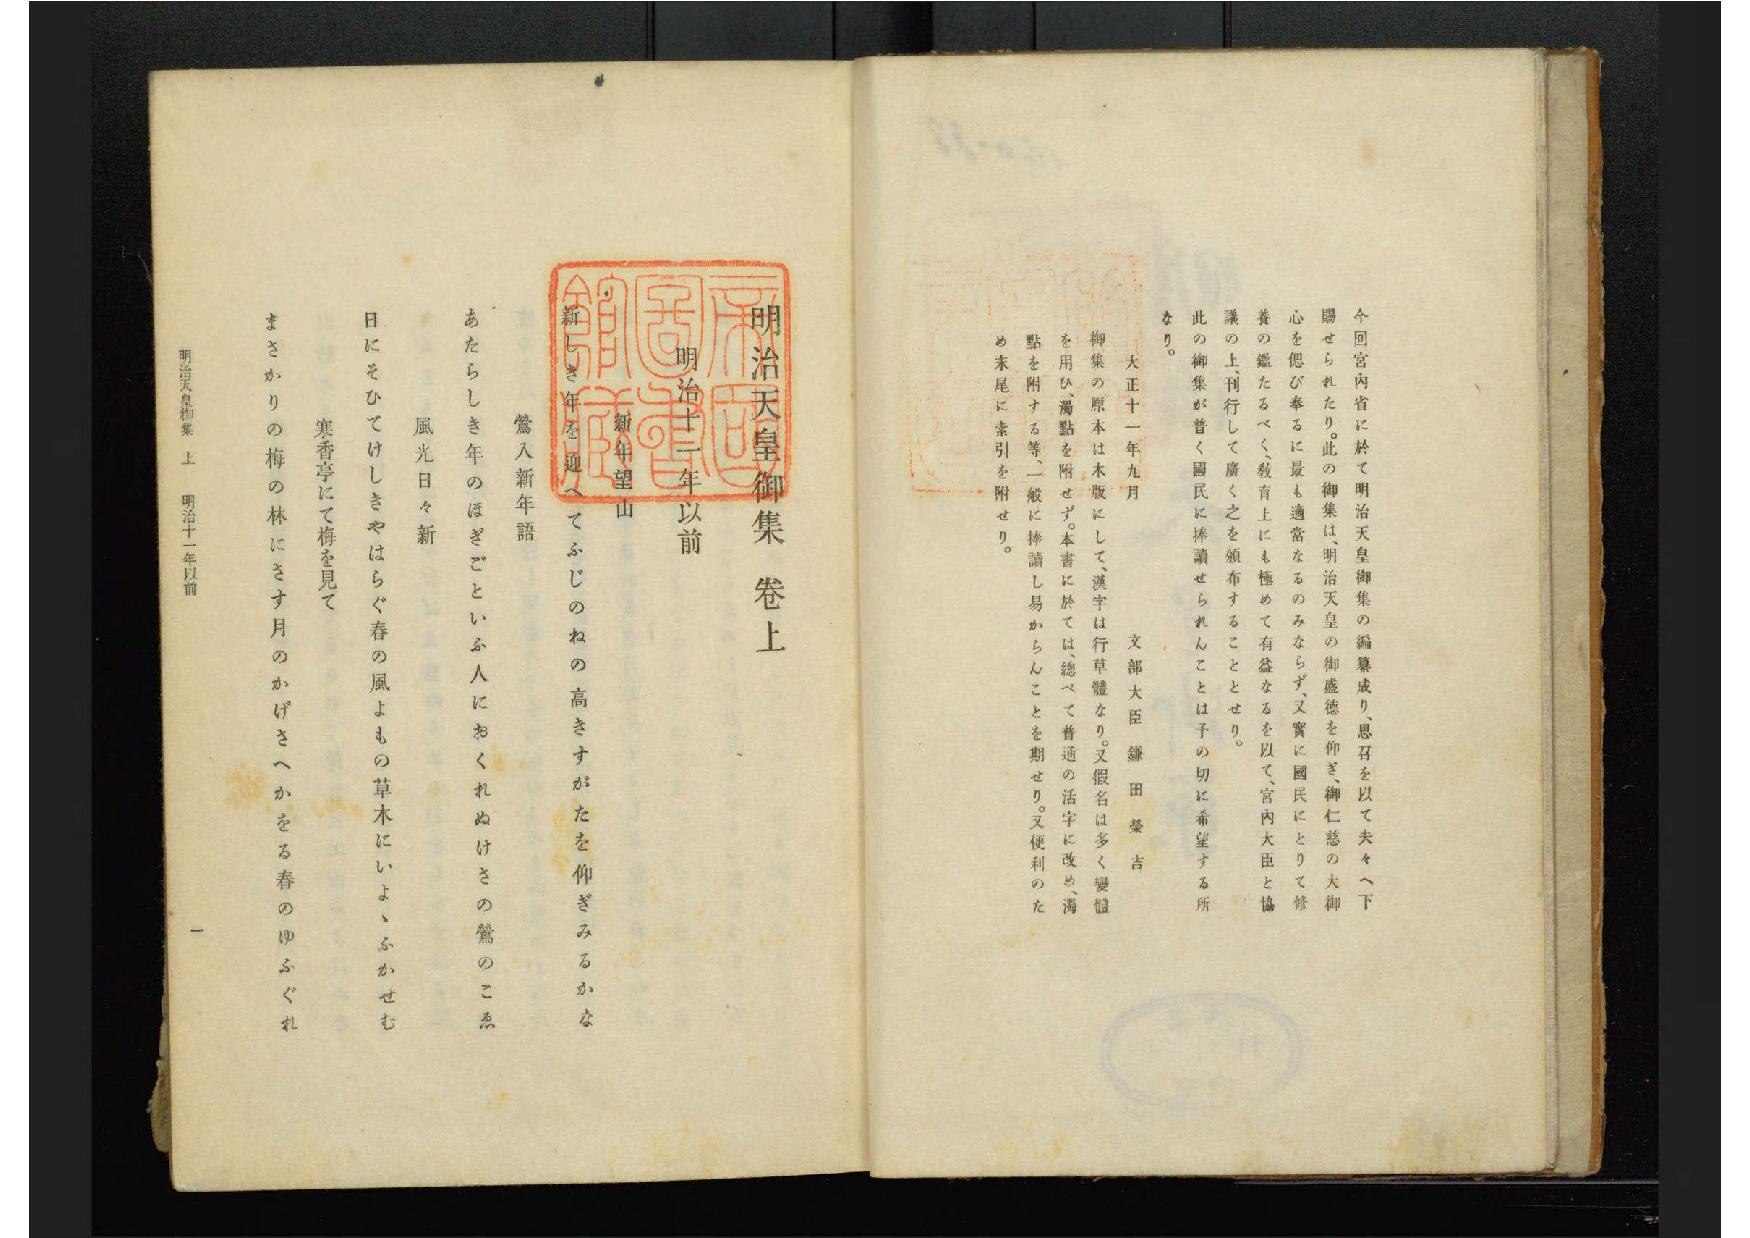 今回宮內省に於て明治天皇御集の編纂成り、思召を以て夫々へ下
賜せられたり。此の御集は、明治天皇の御盛德を仰ぎ、御仁慈の大御
心を偲び奉るに最も適當なるのみならず、又實に國民にとりて修
養の鑑たるべく、敎育上にも極めて有益なるを以て、宮內大臣と協
議の上、刊行して廣く之を頒布することとせり。
此の御集が普く國民に捧讀せられんことは予の切に希望する所
なり。
大正十一年九月
文部大臣 鎌田榮吉
御集の原本は木版にして、漢字は行草體なり。又假名は多く變體
を用ひ、濁點を附せず。本書に於ては、總べて普通の活字に改め、濁
點を附する等、一般に捧讀し易からんことを期せり。又便利のた
め末尾に索引を附せり。
明治天皇御集 卷上
明治十一年以前
新年望山
新しき年を迎へてふじのねの高きすがたを仰ぎみるかな
鶯入新年語
あたらしき年のほぎごといふ人におくれぬけさの鶯のこゑ
風光日々新
日にそひてけしきやはらぐ春の風よもの草木にいよゝふかせむ
寒香亭にて梅を見て
まさかりの梅の林にさす月のかげさへかをる春のゆふぐれ
明治天皇御集 上 明治十一年以前
一
帝國圖書館藏